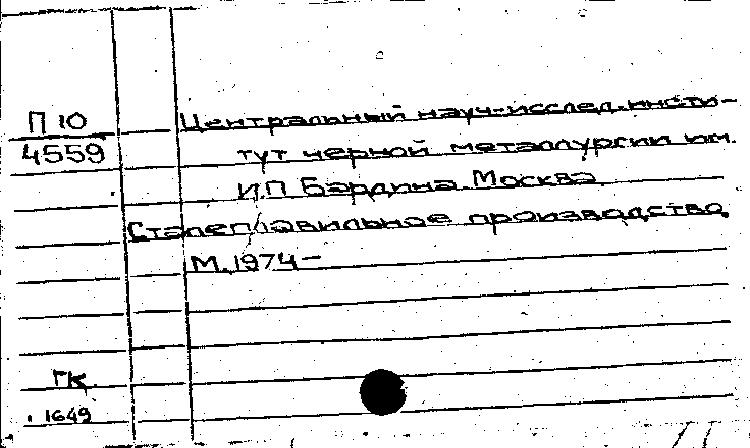 П 10
4559
Центральный науч-исслед.инсти-
тут черной металлургии им.
И.П Бардина. Москва
Сталеплавильное производство.
М.1974-
ГК
1649